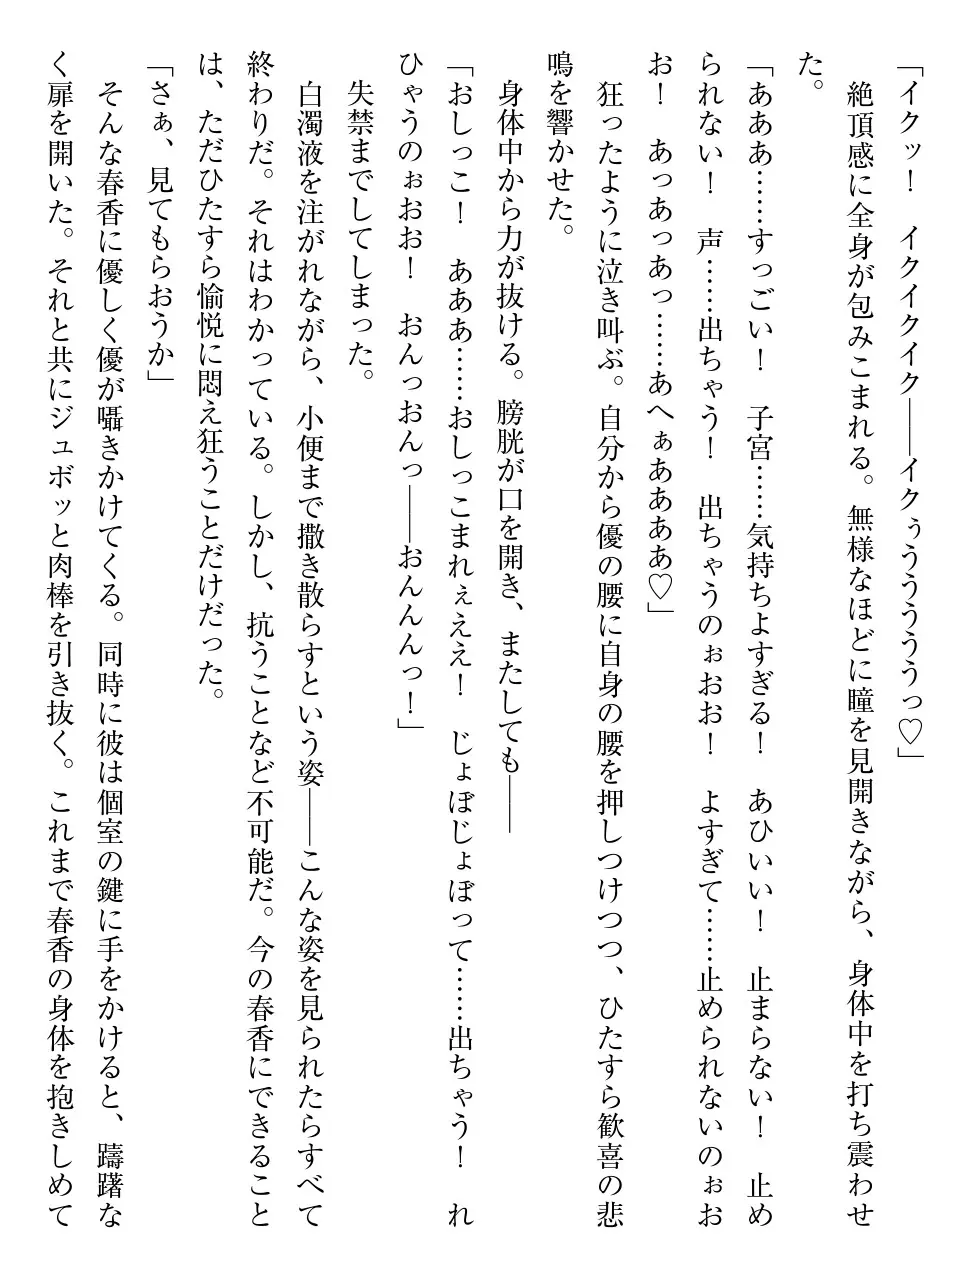 「イクッ！　イクイクイク――イクぅうううううっ♡」
　絶頂感に全身が包みこまれる。無様なほどに瞳を見開きながら、身体中を打ち震わせ
た。
「あああ……すっごい！　子宮……気持ちよすぎる！　あひいい！　止まらない！　止め
られない！　声……出ちゃう！　出ちゃうのぉおお！　よすぎて……止められないのぉお
お！　あっあっあっ……あへぁああああ♡」
　狂ったように泣き叫ぶ。自分から優の腰に自身の腰を押しつけつつ、ひたすら歓喜の悲
鳴を響かせた。
　身体中から力が抜ける。膀胱が口を開き、またしても――
「おしっこ！　あああ……おしっこまれぇええ！　じょぼじょぼって……出ちゃう！　れ
ひゃうのぉおお！　おんっおんっ――おんんんっ！」
　失禁までしてしまった。
　白濁液を注がれながら、小便まで撒き散らすという姿――こんな姿を見られたらすべて
終わりだ。それはわかっている。しかし、抗うことなど不可能だ。今の春香にできること
は、ただひたすら愉悦に悶え狂うことだけだった。
「さぁ、見てもらおうか」
　そんな春香に優しく優が囁きかけてくる。同時に彼は個室の鍵に手をかけると、躊躇な
く扉を開いた。それと共にジュボッと肉棒を引き抜く。これまで春香の身体を抱きしめて